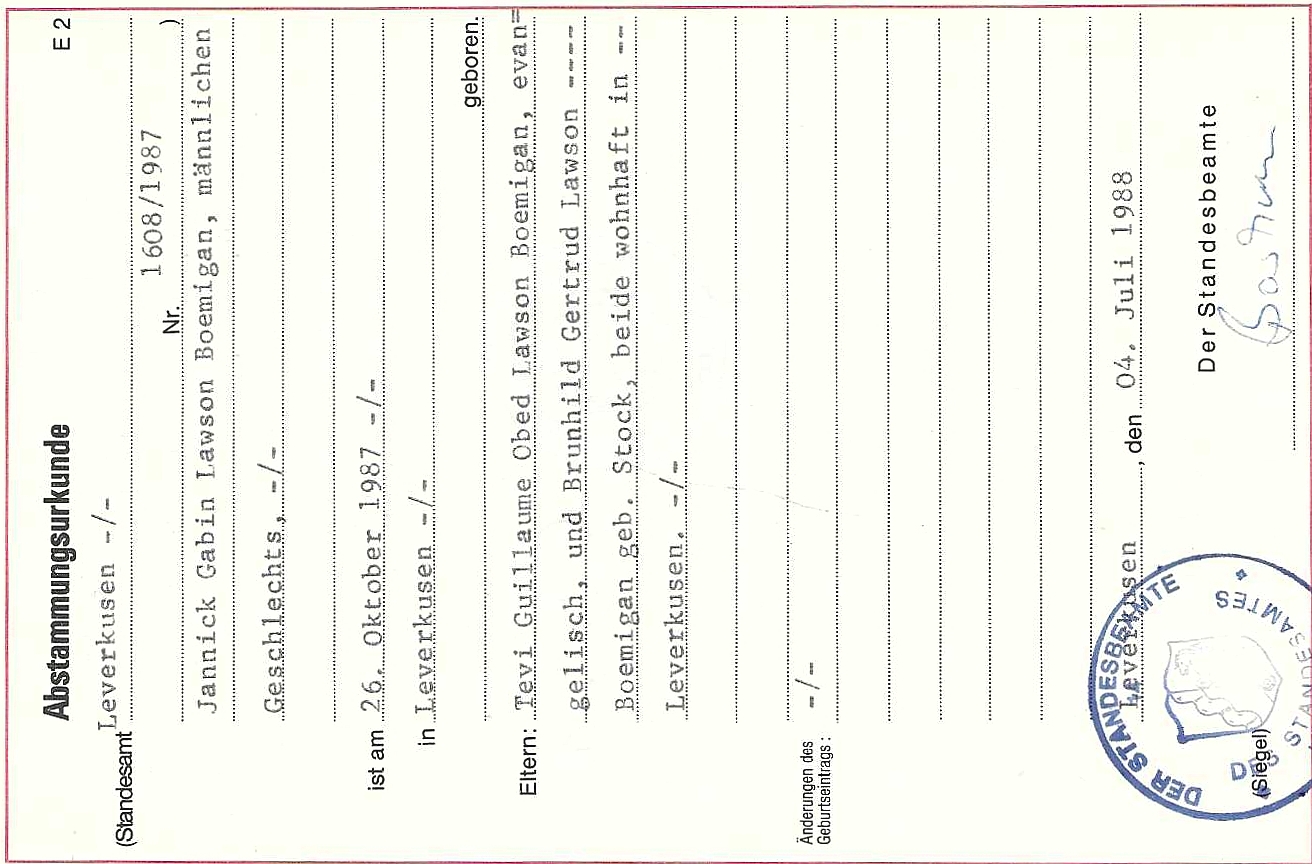 E 2
Abstammungsurkunde
(Standesamt Leverkusen -/-
Nr. 1608/1987 )
Jannick Gabin Lawson Boemigan, männlichen
Geschlechts, -/-
ist am 26. Oktober 1987 -/-
in Leverkusen -/-
geboren.
Eltern: Tevi Guillaume Obed Lawson Boemigan, evan=
gelisch, und Brunhild Gertrud Lawson ----
Boemigan geb. Stock, beide wohnhaft in --
Leverkusen. -/-
Änderungen des
Geburtseintrags: -/-
Leverkusen, den 04. Juli 1988
Der Standesbeamte
(Siegel)
DER STANDESBEAMTE
DES STANDESAMTES